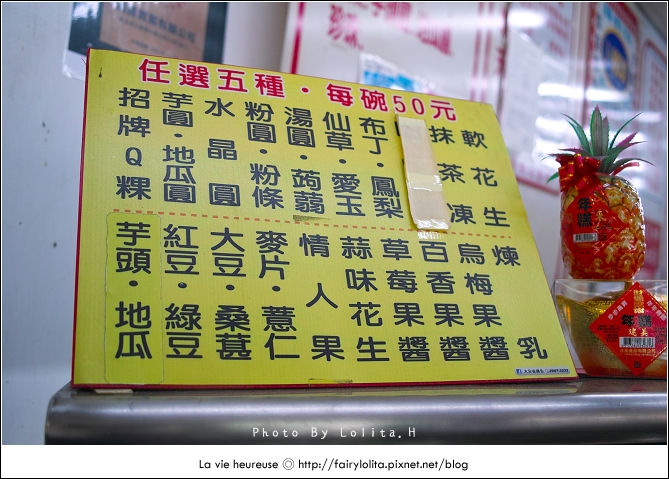 任選五種・每碗50元
招牌Q粿
芋圓・地瓜圓
水晶圓
粉圓・粉條
湯圓・蒟蒻
仙草・愛玉
布丁・鳳梨
抹茶凍
軟花生
芋頭・地瓜
紅豆・綠豆
大豆・桑葚
麥片・薏仁
情人果
蒜味花生
草莓果醬
百香果醬
烏梅果醬
煉乳
年糕
年糕
Photo By Lolita.H
La vie heureuse ◎ http://fairylolita.pixnet.net/blog